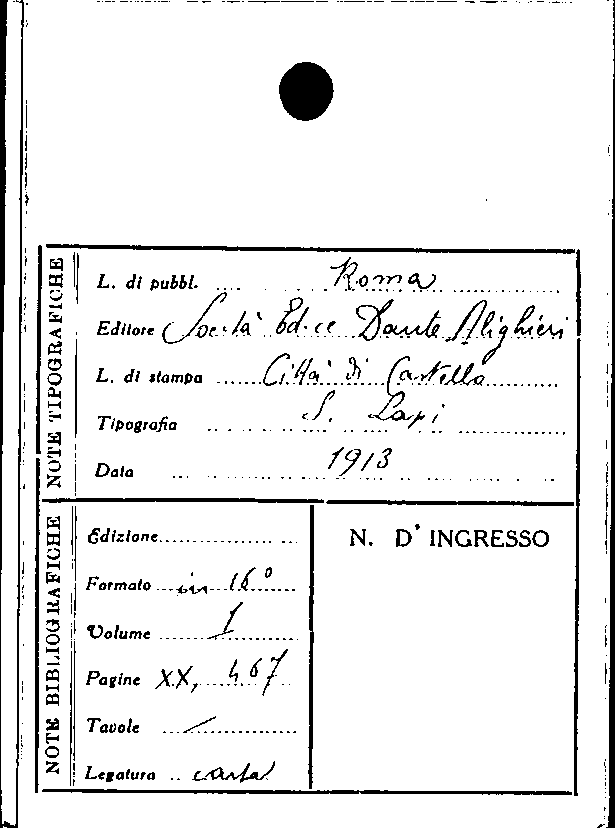 NOTE TIPOGRAFICHE
L. di pubbl. Roma
Editore Società Ed.ce Dante Alighieri
L. di stampa Città di Castello
Tipografia S. Lapi
Data 1913
NOTE BIBLIOGRAFICHE
Edizione
Formato in 16°
Volume 1
Pagine XX, 467
Tavole /
Legatura carta
N. D' INGRESSO